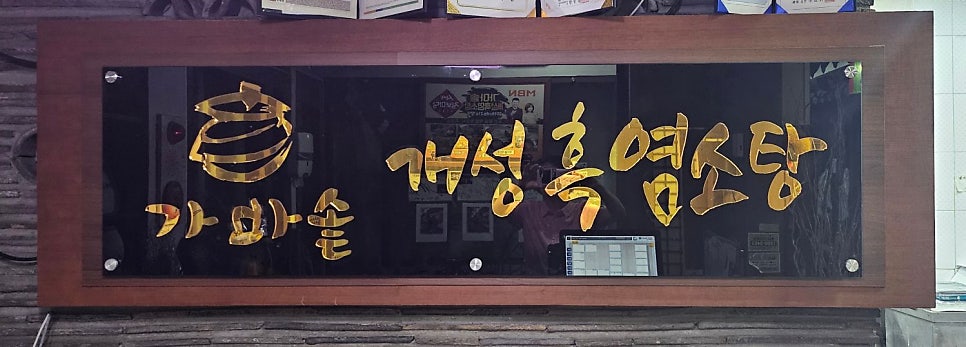 가마솥
개성 흑염소탕
MBN